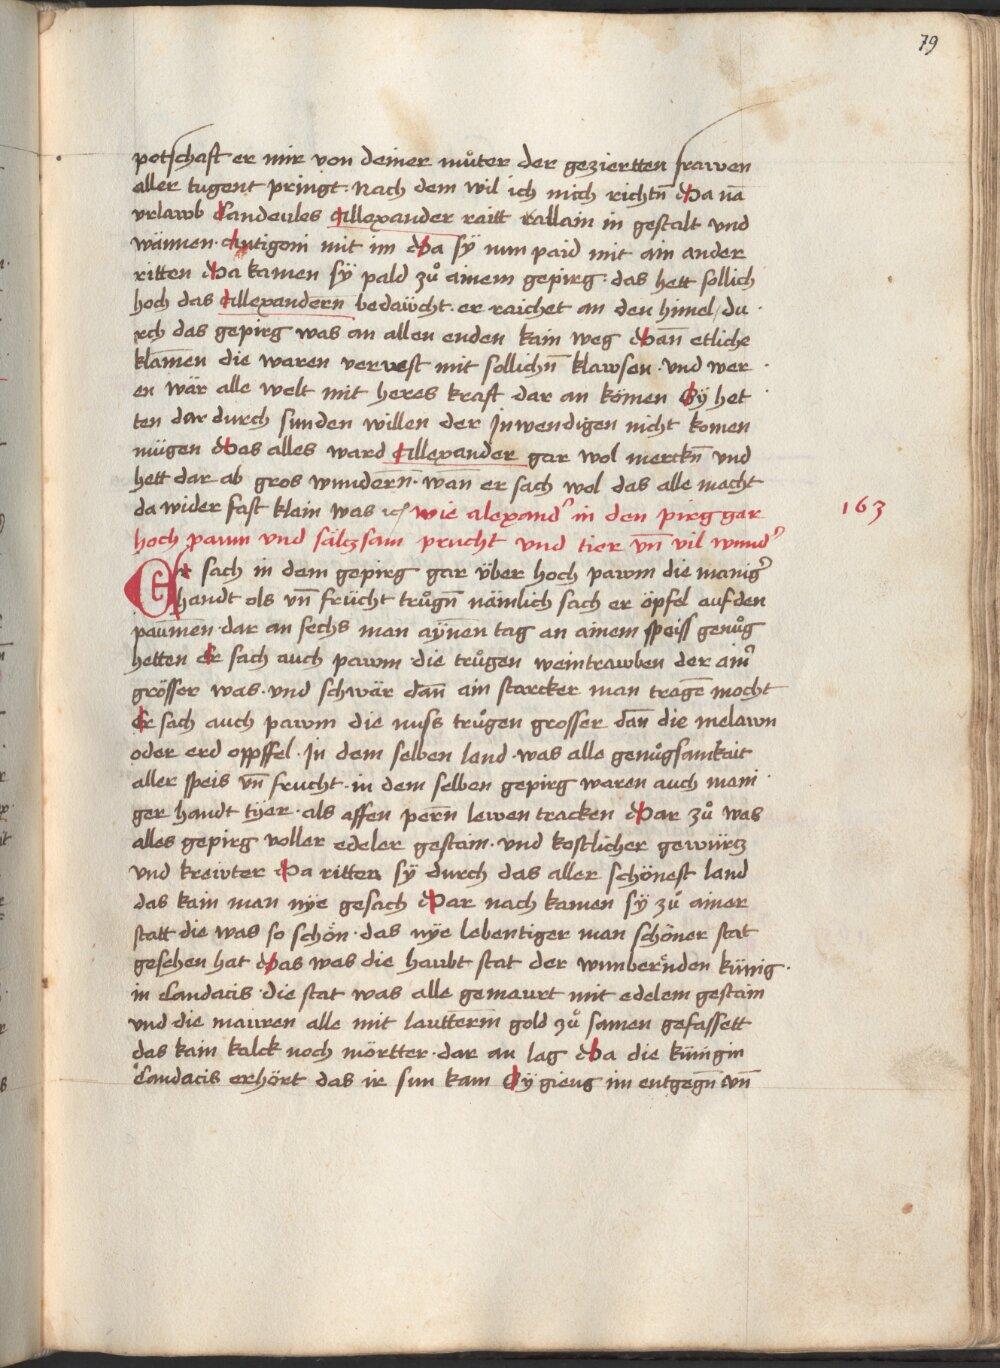 79
potschaft er mir von deiner můter der geziertten frawen
aller tugent pringt · Nach dem wil ich mich richtn̄ Da nā
vrlawb Candeules Allexander raitt callain in gestalt vnd
wännen · Antigoni mit im Da sÿ nun paid mit ain ander
ritten Da kamen sÿ pald zů ainem gepirg · das hett sollich
hoch das Allexandern bedäwcht · er raichet an den himel / du
rch das gepirg was an allen enden kain weg Dan̄ etliche
klam̄en die waren vervest mit sollichn̄ klawsen · vnd wer
en wär alle welt mit heres kraft dar an kömen Sÿ het
ten dar durch sunden willen der Inwendigen nicht komen
mügen Das alles ward Allexander gar wol merckn̄ vnd
hett dar ab gros wundern̄ · wan̄ er sach wol das alle macht
da wider fast klein was wie alexand' in den pirg gar
hoch pawm vnd sältzsam prucht vnd tier vn̄ vil wund'
163
Er sach in dem gepirg gar über hoch pawm die manig'
handt ols vn̄ frücht trůgn̄ nämlich sach er öpfel auf den
paum̄en · dar an sechs man aÿnen tag an ainem speiss genůg
hetten Er sach auch pawm die trůgen weintrawben der aim'
grösser was · vnd schwär dan̄ ain starcker man tragē mocht
Er sach auch pawm die nuss trůgen grosser dan̄ die melawn
oder erd oppffel · In dem selben land · was alle genůgsamkait
aller speis vn̄ frucht · in dem selben gepirg waren auch mani
ger handt tÿer · als affen pern̄ lewen tracken Dar zů was
alles gepirg voller edeler gestain · vnd kostlicher gewürtz
vnd krewter Da ritten sÿ durch das aller schönest land
das kain man nÿe gesach Dar nach kamen sÿ zů ainer
statt die was so schön · das nÿe lebentiger man schöner stat
gesehen hat Das was die haubt stat der wunbernden künig ·
in Candacis · die stat was alle gemaurt mit edelem gestain
vnd die mauren alle mit lautterm̄ gold zů samen gefassett
das kain kalck noch mörtter · dar an lag Da die künigin
Candacis erhört das ir sun kam Sÿ gieng im entgegn̄ vn̄